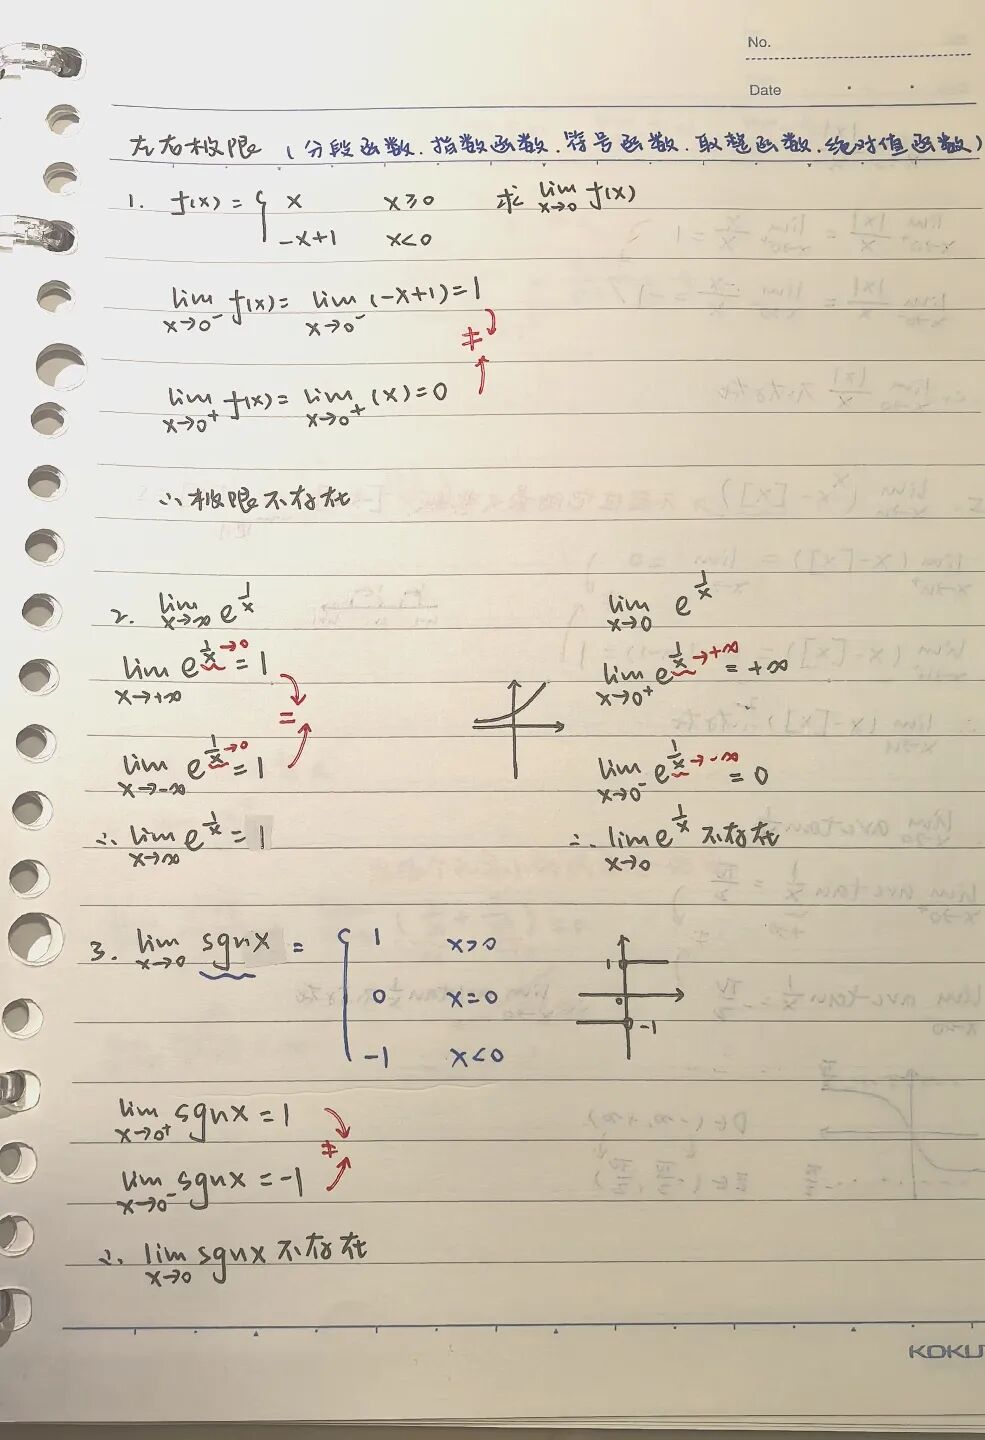 No.
Date
左右极限 (分段函数.指数函数.符号函数.取整函数.绝对值函数)
1. f(x) = { x x≥0 求 lim x→0 f(x)
-x+1 x<0
lim x→0⁻ f(x) = lim x→0⁻ (-x+1) = 1
≠
lim x→0⁺ f(x) = lim x→0⁺ (x) = 0
∴ 极限不存在
2. lim x→∞ e^(1/x)
lim x→+∞ e^(1/x) →0 = 1
=
lim x→-∞ e^(1/x) →0 = 1
∴ lim x→∞ e^(1/x) = 1
lim x→0 e^(1/x)
lim x→0⁺ e^(1/x) →+∞ = +∞
lim x→0⁻ e^(1/x) →-∞ = 0
∴ lim x→0 e^(1/x) 不存在
3. lim x→0 sgnx = { 1 x>0
0 x=0
-1 x<0
1
0
-1
lim x→0⁺ sgnx = 1
≠
lim x→0⁻ sgnx = -1
∴ lim x→0 sgnx 不存在
KOKU